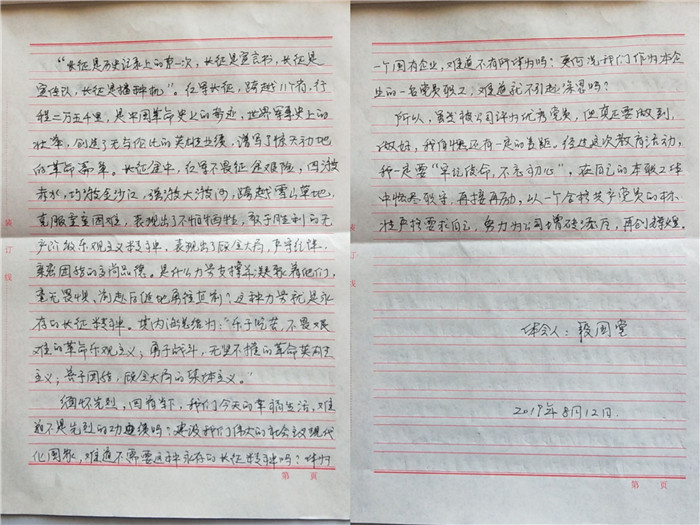 “长征是历史记录上的第一次，长征是宣言书，长征是
宣传队，长征是播种机”。红军长征，跨越11个省，行
程二万五千里，是中国革命史上的奇迹，世界军事史上的
壮举，创造了无与伦比的英雄业绩，谱写了惊天动地
的革命篇章。长征途中，红军不畏征途艰险，四渡
赤水，巧渡金沙江，强渡大渡河，跨越雪山草地，
克服重重困难，表现出了不怕牺牲，敢于胜利的无
产阶级乐观主义精神，表现出了顾全大局，严守纪律，
紧密团结的高尚品德。是什么力量支撑并凝聚着他们，
毫无畏惧、前赴后继地勇往直前？这种力量就是永
存的长征精神。其内涵总结为：“乐于吃苦，不畏艰
难的革命乐观主义；勇于战斗，无坚不摧的革命英雄
主义；善于团结，顾全大局的集体主义。”
缅怀先烈，因有当下，我们今天的幸福生活，难
道不是先烈的功绩吗？建设我们伟大的社会主义现代
化国家，难道不需要这种永存的长征精神吗？作为
第 页
一个国有企业，难道不有所作为吗？更何况我们作为本企
业的一名党员职工，难道就不引起深思吗？
所以，虽我被公司评为优秀党员，但真正要做到，
做好，我自愧还有一定的差距。经过这次教育活动，
我一定要“牢记使命，不忘初心”，在自己的本职工作
中恪尽职守，再接再励，以一个合格共产党员的标
准严格要求自己，努力为公司增砖添瓦，再创辉煌。
体会人：国堂
2019年8月12日.
第 页
装 订 线